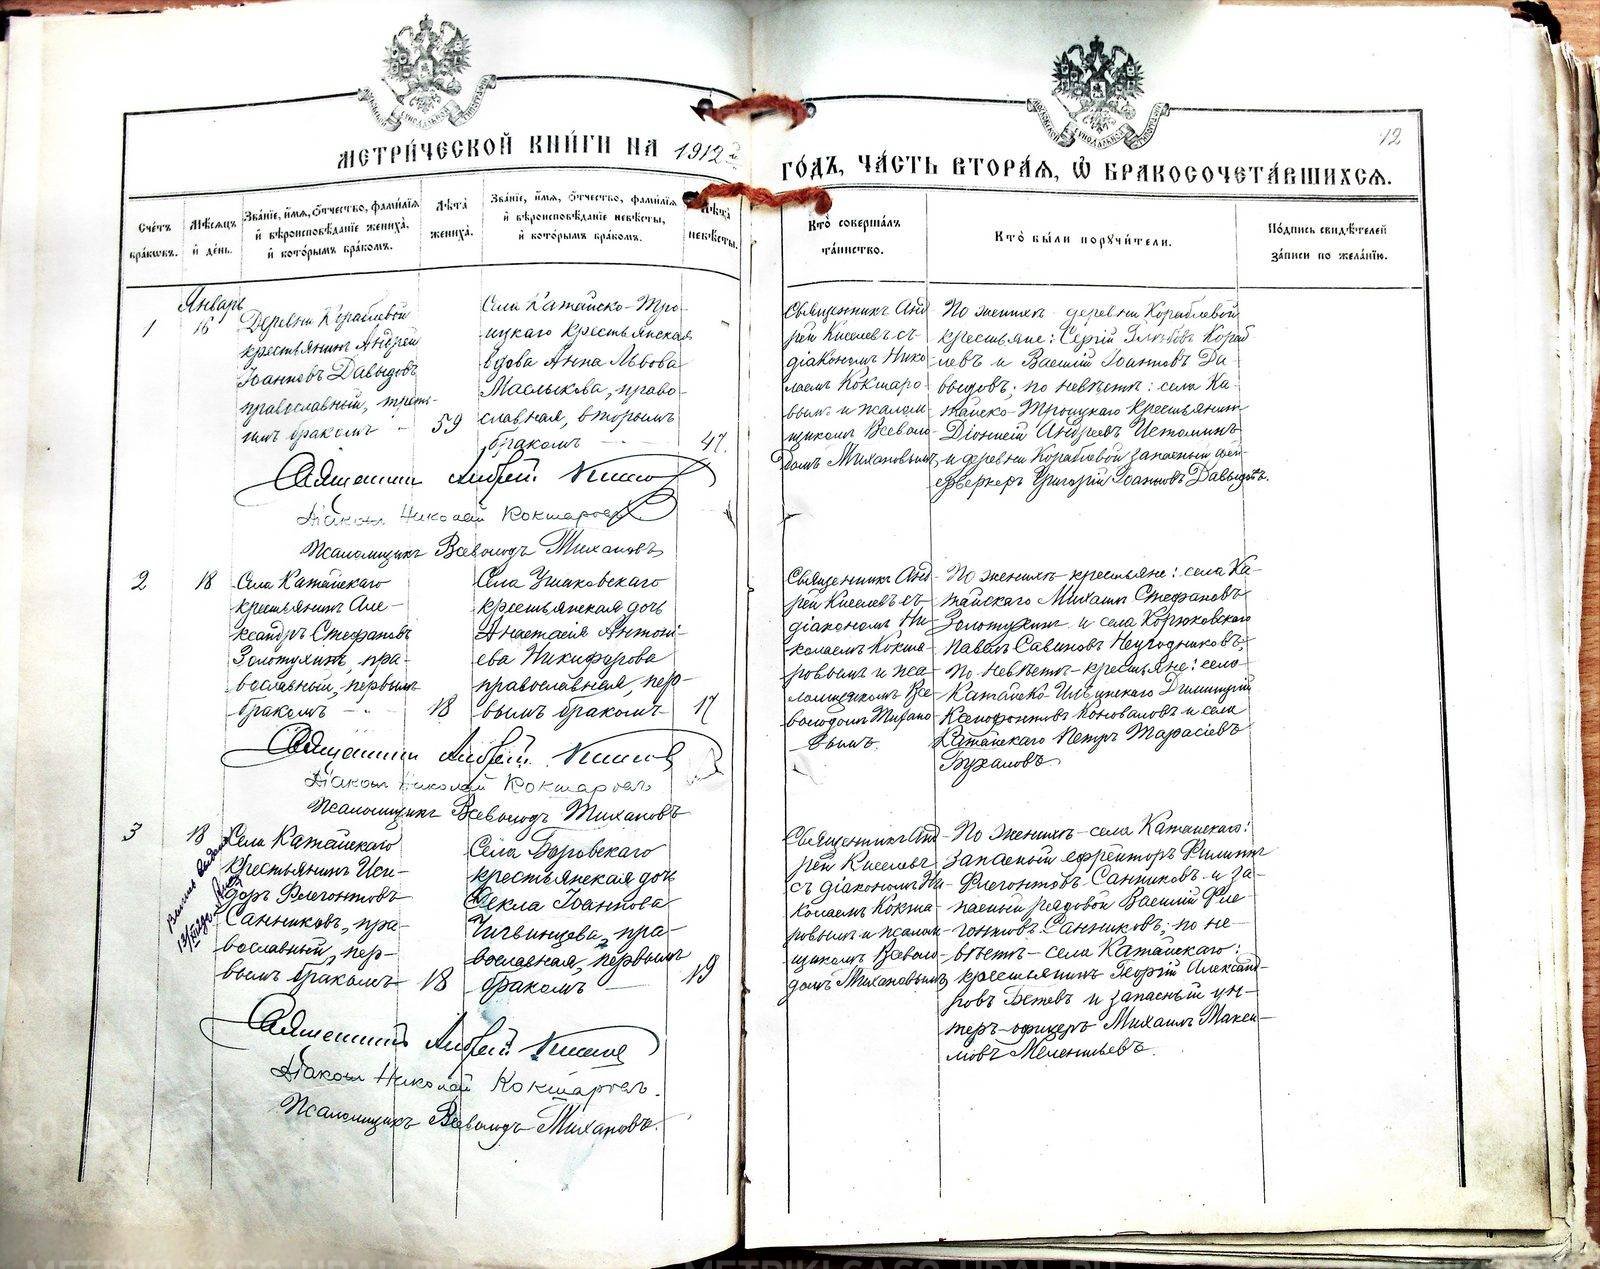 МЕТРИ́ЧЕСКОЙ КНИ́ГИ НА 1912й
ГО́ДЪ, ЧА́СТЬ ВТОРА́Я, Ѡ БРАКОСОЧЕТА́ВШИХСЯ.
12
Сче́тъ бра́ковъ.
Мѣ́сяцъ и́ де́нь.
Зва́нїе, и́мя, ѻ́тчество, фами́лїя и́ вѣроисповѣ́данїе жениха̀, и́ кото́рымъ бра́комъ.
Лѣ́та жениха̀.
Зва́нїе, и́мя, ѻ́тчество, фами́лїя и́ вѣроисповѣ́данїе невѣ́сты, и́ кото́рымъ бра́комъ.
Лѣ́та невѣ́сты.
Кто̀ соверша́лъ та́инство.
Кто̀ бы́ли поручи́тели.
По́дпись свидѣ́телей за́писи по жела́нїю.
1
Январь
16
Деревни Кораблевой
крестьянинъ Андрей
Іоанновъ Давыдовъ
православный, треть-
имъ бракомъ
59
Села Катайско-Тро-
ицкаго крестьянская
вдова Анна Львова
Маслыкова, право-
славная, вторымъ
бракомъ
47
Священникъ Анд
рей Киселевъ съ
діакономъ Нико
лаемъ Кокшаро
вымъ и псалом
щикомъ Всеволо
домъ Тихановымъ
По женихѣ деревни Кораблевой
крестьяне: Сергій
левъ и Василій Іоанновъ Да-
выдовъ; по невѣстѣ: села Ка-
тайско-Троицкаго крестьянин
Діонисій Андреевъ Истоминъ
и деревни Кораблевой запасный фей-
ерверкеръ Григорій Іоанновъ Давыдовъ.
Священникъ Андрей Киселевъ
Діаконъ Николай Кокшаровъ
Псаломщикъ Всеволодъ Тихановъ
2
18
Села Катайскаго
крестьянинъ Але-
ксандръ Стефановъ
Золотухинъ, пра-
вославный, первымъ
бракомъ
18
Села Ушаковскаго
крестьянская дочь
Анастасія Антоні-
ева Никифорова
православная, пер-
вымъ бракомъ
17
Священникъ Анд
рей Киселевъ съ
діакономъ Ни-
колаемъ Кокша
ровымъ и пса-
ломщикомъ Все
володомъ Тихано
вымъ.
По женихѣ крестьяне: села Ка-
тайскаго Михаилъ Стефановъ
Золотухинъ и села Корюковскаго
Павелъ Савиновъ Неугодниковъ;
по невѣстѣ крестьяне: села
Катайско-Ильинскаго Димитрій
Ксенофонтовъ Коноваловъ и села
Катайскаго Петръ Тарасіевъ
Бухаловъ
Священникъ Андрей Киселевъ
Діаконъ Николай Кокшаровъ
Псаломщикъ Всеволодъ Тихановъ
3
18
Села Катайскаго
крестьянинъ Иси-
доръ Флегонтовъ
Санниковъ, пра-
вославный, пер-
вымъ бракомъ
18
Села Боровскаго
крестьянская дочь
Ѳекла Іоаннова
Чичвинцева, пра-
вославная, первымъ
бракомъ
19
Священникъ Анд
рей Киселевъ
съ діакономъ Ни-
колаемъ Кокша-
ровымъ и псалом
щикомъ Всеволо-
домъ Тихановымъ
По женихѣ села Катайскаго:
запасный ефрейторъ Филиппъ
Флегонтовъ Санниковъ и за-
пасный рядовой Василій Фле-
гонтовъ Санниковъ; по не-
вѣстѣ села Катайскаго:
крестьянинъ Георгій Александ-
ровъ и запасный ун-
теръ-офицеръ Михаилъ Макси-
мовъ Мелентьевъ.
Священникъ Андрей Киселевъ
Діаконъ Николай Кокшаровъ.
Псаломщикъ Всеволодъ Тихановъ.